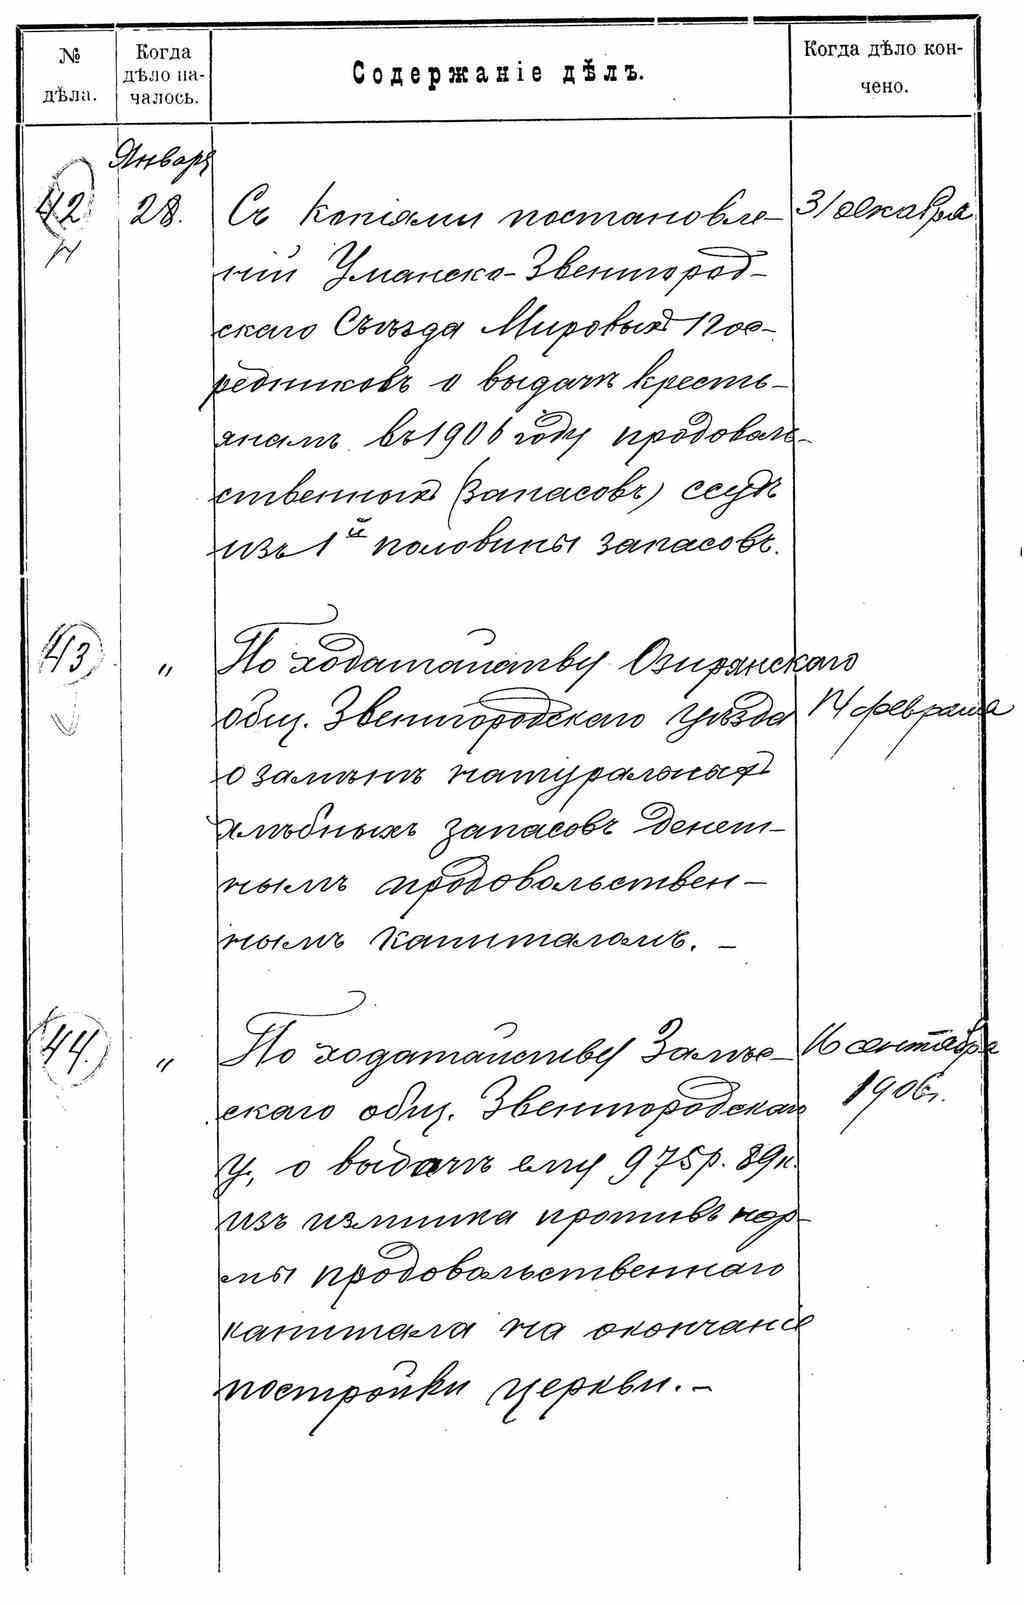 № дѣла. Когда дѣло на- чалось. Содержаніе дѣлъ. Когда дѣло кон- чено.
Января
42 28. Съ копіями постановле- 31 декабря
ній Уманско-Звенигород-
скаго Съѣзда Мировыхъ Пос-
редниковъ о выдачѣ кресть-
янамъ въ 1906 году продоволь-
ственныхъ (запасовъ) ссудъ
изъ 1й половины запасовъ.
43 " По ходатайству Озирянскаго
общ. Звенигородскаго уѣзда 14 февраля
о замѣнѣ натуральныхъ
хлѣбныхъ запасовъ денеж-
нымъ продовольствен-
нымъ капиталомъ. -
44. " По ходатайству 16 сентября
скаго общ. Звенигородскаго 1906г.
у., о выдачѣ ему 975р. 89к.
изъ излишка противъ нор-
мы продовольственнаго
капитала на окончаніе
постройки церкви. -